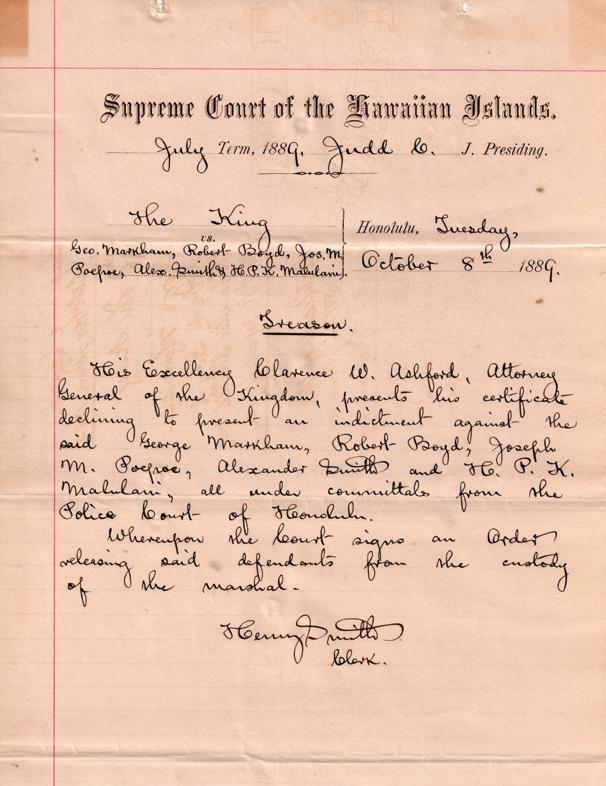 Supreme Court of the Hawaiian Islands.
July Term, 1889. Judd C. J. Presiding.
The King
vs.
Geo. Markham, Robert Boyd, Jos. M.
Poepoe, Alex. Smith & H. P. K. Malulani.
Honolulu, Tuesday,
October 8th 1889.
Treason.
His Excellency Clarence W. Ashford, Attorney
General of the Kingdom, presents his certificate
declining to present an indictment against the
said George Markham, Robert Boyd, Joseph
M. Poepoe, Alexander Smith and H. P. K.
Malulani, all under committals from the
Police Court of Honolulu.
Whereupon the Court signs an Order
releasing said defendants from the custody
of the marshal.
Henry Smith
Clerk.